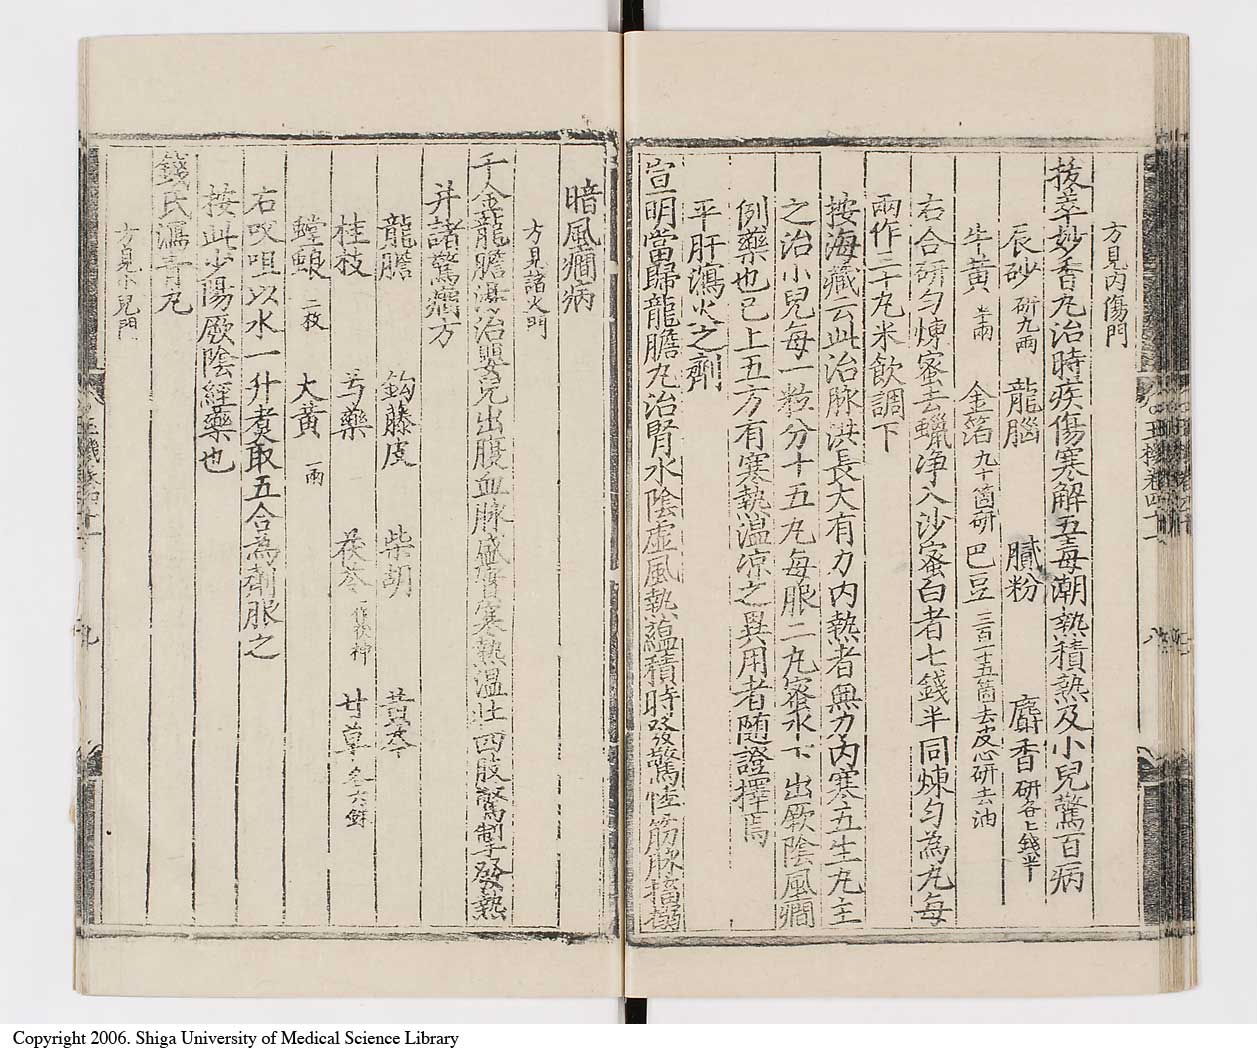 方見内傷門
拔萃妙香丸治時疾傷寒解五毒潮熱積熱及小兒驚百病
辰砂研九兩 龍腦 膩粉 麝香研各七錢半
牛黃半兩 金箔九十箇研 巴豆三百一十五箇去皮心研去油
右合研勻煉蜜去蠟净入沙蜜白者七錢半同煉勻為丸每
兩作三十丸米飲調下
按海藏云此治脉洪長大有力内熱者無力内寒五生丸主
之治小兒每一粒分十五丸每服二丸蜜水下出厥陰風癇
例藥也已上五方有寒熱温凉之異用者随證擇焉
平肝瀉火之劑
宣明當歸龍膽丸治腎水陰虚風熱蘊積時發驚悸筋脉搐搦
暗風癇病
方見諸火門
千金龍膽湯治嬰兒出腹血脉盛實寒熱温壮四肢驚掣發熱
并諸驚癇方
龍膽 鈎藤皮 柴胡 黄芩
桂枝 芍藥 茯苓一作茯神 甘草各六銖
螳蜋二枚 大黃一兩
右㕮咀以水一升煮取五合為劑服之
按此少陽厥陰經藥也
錢氏瀉青丸
方見小兒門
玉機卷四十一 八
玉機卷四十一 九
Copyright 2006. Shiga University of Medical Science Library